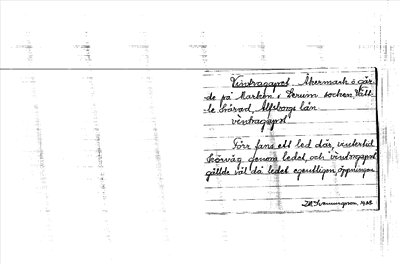 Vintragapot. Åkermark å går-
de på Marken i Lerum socken, Vätt-
le härad, Älfsborgs län
vintragapot
Förr fans ett led där, vintertid
körväg genom ledet, och vintragapot
gällde väl då ledet egentligen, öppningen
1928